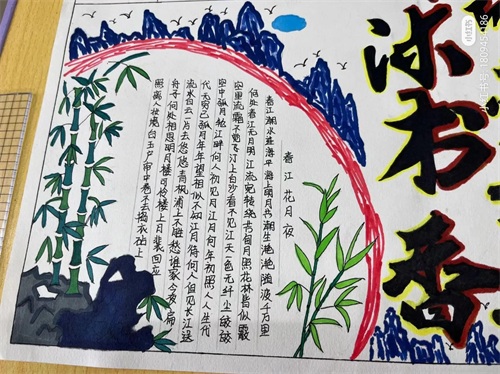 沐书香
春江花月夜
春江潮水连海平海上明月共潮生滟滟随波千万里
何处春江无月明江流宛转绕芳甸月照花林皆似霰
空里流霜不觉飞汀上白沙看不见江天一色无纤尘皎皎
空中孤月轮江畔何人初见月江月何年初照人人生代
代无穷已孤月年年望相似不知江月待何人但见长江送
流水白云一片去悠悠青枫浦上不胜愁谁家今夜扁
舟子何处相思明月楼可怜楼上月裴回应
照离人妆镜白玉户帘中卷不去捣衣砧上
小红书